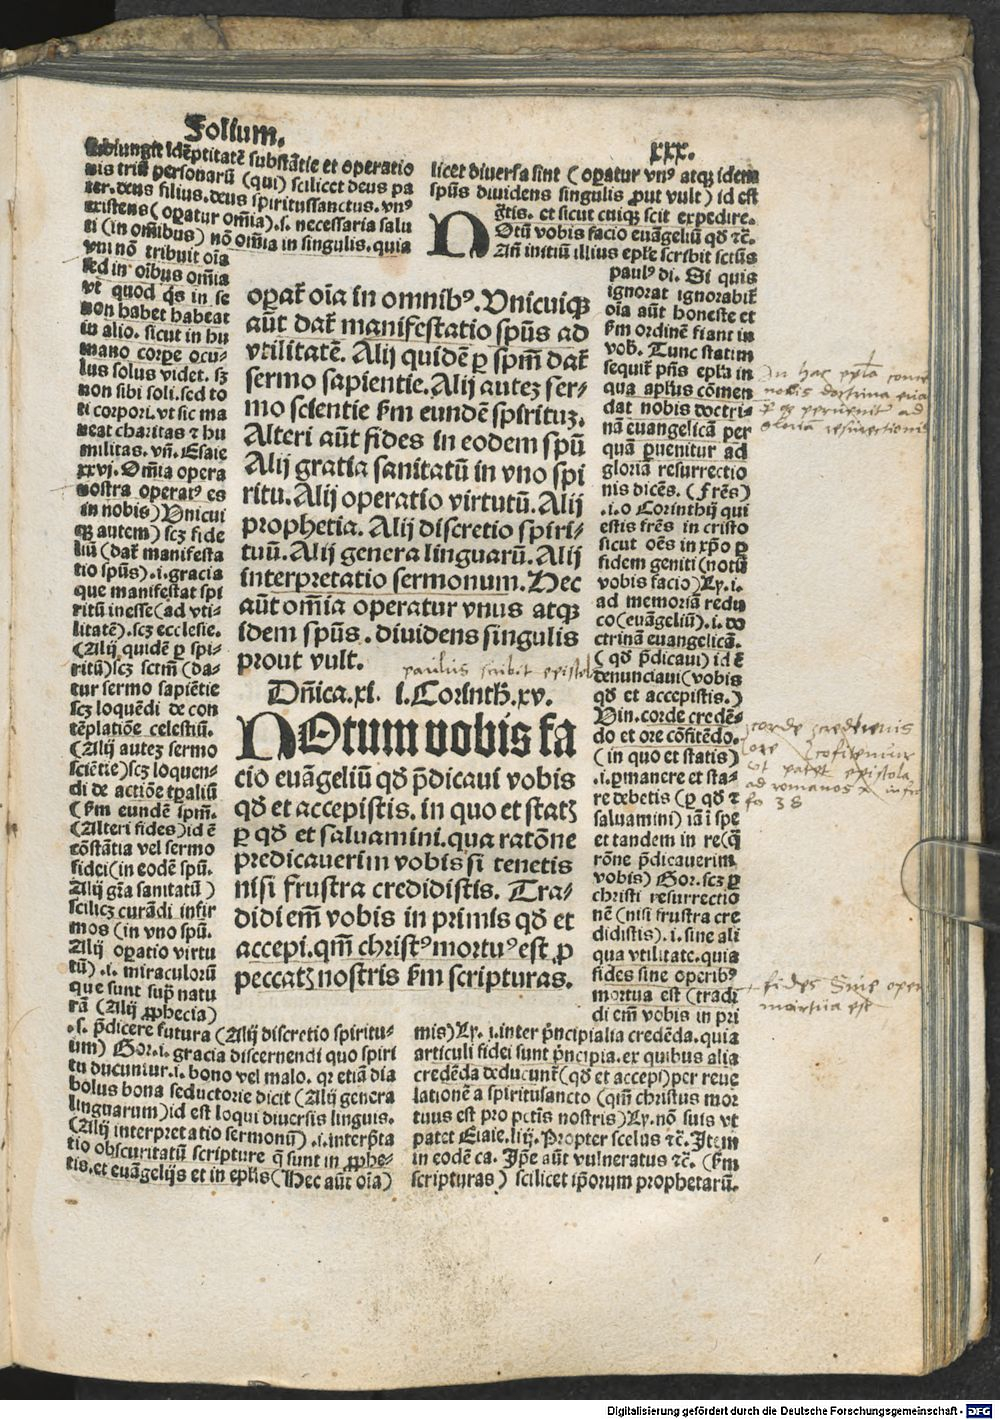 Folium.
xxx.
subiungit idēptitatē substātie et operatio
nis triū personarū (qui) scilicet deus pa
ter. deus filius. deus spiritussanctus. vnꝰ
existens (oꝑatur om̄ia) .s. necessaria salu
ti (in om̄ibus) nō om̄ia in singulis. quia
vni nō tribuit oīa
sed in oībus om̄ia
vt quod q̄s in se
non habet habeat
in alio. sicut in hu
mano corpe ocu-
lus solus videt. sꝫ
non sibi soli. sed to
ti corpori. vt sic ma
neat charitas ⁊ hu
militas. vn̄. Esaie
xxvj. Om̄ia opera
nostra operatꝰ es
in nobis) Vnicui
qꝫ autem) scꝫ fide
liū (dat̄ manifesta
tio spūs) .i. gracia
que manifestat spi
ritū inesse (ad vti-
litatē) .scꝫ ecclesie.
(Alij quidē ꝑ spi-
ritū) scꝫ sctm̄ (da-
tur sermo sapiētie
scꝫ loquēdi de con
tēplatiōe celestiū.
(Alij autez sermo
sciētie) scꝫ loquen-
di de actiōe tꝑaliū
(s̄m eundē spm̄.
(Alteri fides) id ē
cōstātia vel sermo
fidei (in eodē spū.
Alij gr̄a sanitatū)
scilicꝫ curādi infir
mos (in vno spū.
Alij oꝑatio virtu
tū) .i. miraculorū
que sunt sup̄ natu
rā (Alij ꝓphecia)
.s. p̄dicere futura (Alij discretio spiritu-
um) Gor. i. gracia discernendi quo spiri
tu ducuntur. i. bono vel malo. qꝛ etiā dia
bolus bona seductorie dicit (Alij genera
linguarum) id est loqui diuersis linguis.
(Alij interpretatio sermonū) .i. interp̄ta
tio obscuritatū scripture q̄ sunt in ꝓphe-
tis. et euāgelijs et in epl̄is (Hec aūt oīa)
oꝑat̄ oīa in omnibꝰ. Vnicuiqꝫ
aūt dat̄ manifestatio spūs ad
vtilitatē. Alij quidē ꝑ spm̄ dat̄
sermo sapientie. Alij autez ser-
mo scientie s̄m eundē spirituꝫ.
Alteri aūt fides in eodem spū
Alij gratia sanitatū in vno spi
ritu. Alij operatio virtutū. Alij
prophetia. Alij discretio spiri-
tuū. Alij genera linguarū. Alij
interpretatio sermonum. Hec
aūt om̄ia operatur vnus atqꝫ
idem spūs. diuidens singulis
prout vult.
paulus scribit epistol
Dn̄ica. xi. i. Corinth̄. xv.
NOtum vobis fa
cio euāgeliū qd̄ p̄dicaui vobis
qd̄ et accepistis. in quo et statꝫ
ꝑ qd̄ et saluamini. qua ratōne
predicauerim vobis si tenetis
nisi frustra credidistis. Tra-
didi em̄ vobis in primis qd̄ et
accepi. qm̄ christꝰ mortuꝰ est ꝓ
peccatꝫ nostris s̄m scripturas.
licet diuersa sint (oꝑatur vnꝰ atqꝫ idem
spūs diuidens singulis ꝓut vult) id est
gr̄tis. et sicut cuiqꝫ scit expedire.
NOtū vobis facio euāgeliū qd̄ ⁊c̄.
An̄ initiū illius epl̄e scribit sctūs
paulꝰ di. Si quis
ignorat ignorabit̄
oīa aūt honeste et
s̄m ordinē fiant in
vob̄. Tunc statim
sequit̄ pn̄s epl̄a in
qua apl̄us cōmen
dat nobis doctri-
nā euangelicā per
quā ꝑuenitur ad
gloriā resurrectio
nis dicēs. (Fr̄es)
.i. o Corinthij qui
estis fr̄es in cristo
sicut oēs in xp̄o ꝑ
fidem geniti (notū
vobis facio) Ly. i.
ad memoriā redu
co (euāgeliū) .i. do
ctrinā euangelicā.
(qd̄ p̄dicaui) id ē
denunciaui (vobis
qd̄ et accepistis.)
Vin. corde credē-
do et ore cōfitēdo.
(in quo et statis)
.i. ꝑmanere et sta-
re debetis (ꝑ qd̄ ⁊
saluamini) iā i spe
et tandem in re (q̄
rōne p̄dicauerim
vobis) Gor. scꝫ ꝑ
christi resurrectio
nē (nisi frustra cre
didistis) .i. sine ali
qua vtilitate. quia
fides sine operibꝰ
mortua est (tradi
di em̄ vobis in pri
mis) Ly. i. inter p̄ncipialia credēda. quia
articuli fidei sunt p̄ncipia. ex quibus alia
credēda deducunt̄ (qd̄ et accepi) per reue
lationē a spiritusancto (qm̄ christus mor
tuus est pro pctīs nostris) Ly. nō suis vt
patet Esaie. liij. Propter scelus ⁊c̄. Item
in eodē ca. Ip̄e aūt vulneratus ⁊c̄. (s̄m
scripturas) scilicet ip̄orum prophetarū.
In hac epl̄a com
nobis doctrina eua
ꝑ qꝫ peruenitur ad
gloriā resurrectionis
corde creditis
ore confitentur
vt patet epistola
ad romanos x infra
fo 38
fides sine oper
mortua est
Digitalisierung gefördert durch die Deutsche Forschungsgemeinschaft - DFG